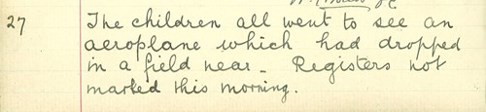 27 The children all went to see an
aeroplane which had dropped
in a field near. Registers not
marked this morning.